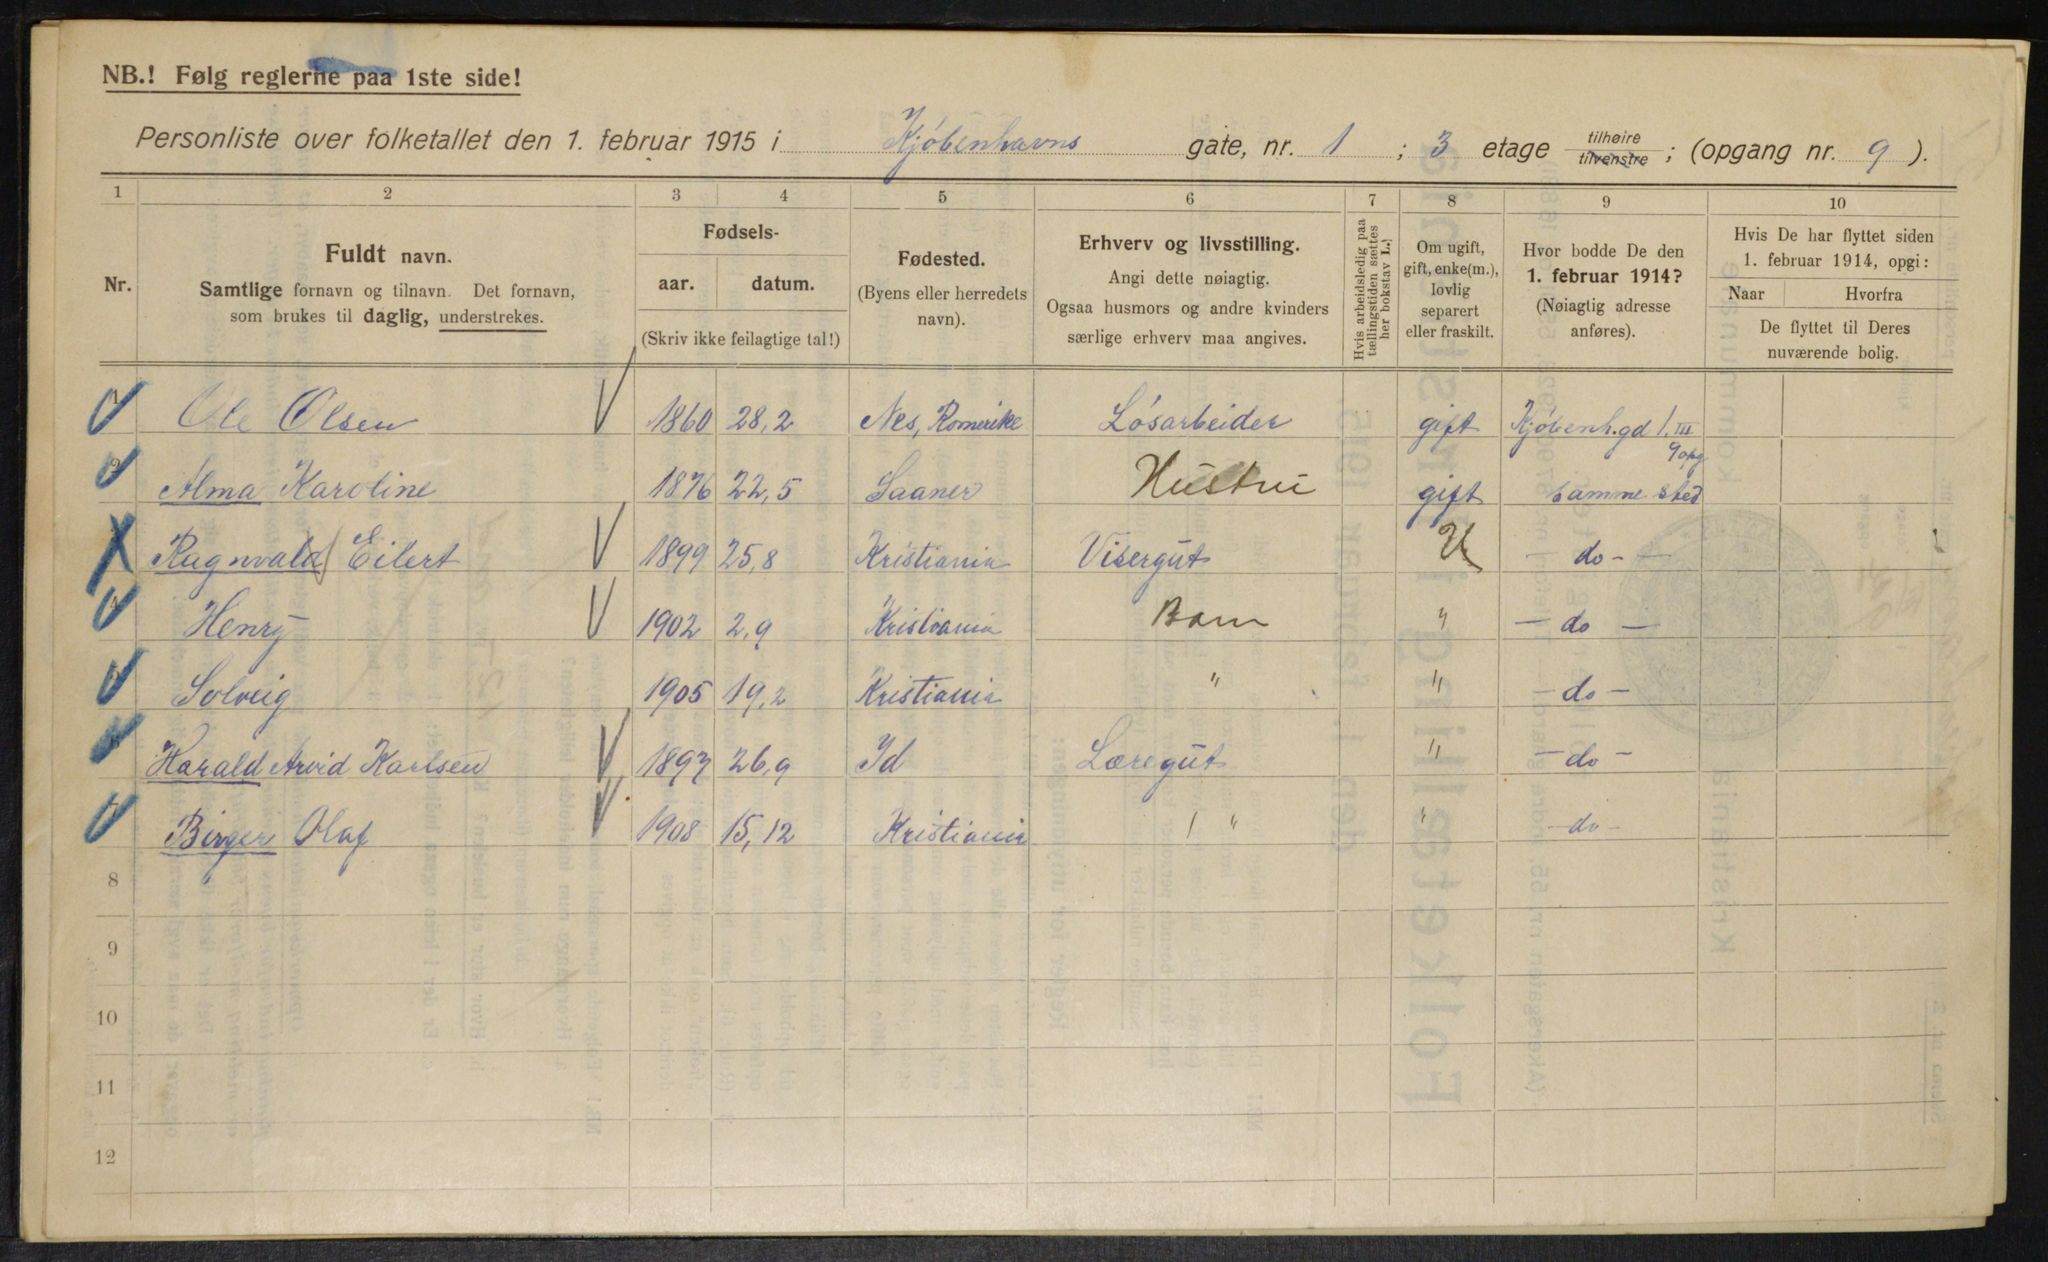 NB.! Følg reglerne paa 1ste side!
Personliste over folketallet den 1. februar 1915 i Kjøbenhavns gate, nr. 1 ; 3 etage tilhøire tilvenstre ; (opgang nr. 9 ).
1 2 3 4 5 6 7 8 9 10
Nr.
Fuldt navn.
Samtlige fornavn og tilnavn. Det fornavn,
som brukes til daglig, understrekes.
Fødsels-
aar. datum.
(Skriv ikke feilagtige tal!)
Fødested.
(Byens eller herredets
navn).
Erhverv og livsstilling.
Angi dette nøiagtig.
Ogsaa husmors og andre kvinders
særlige erhverv maa angives.
Hvis arbeidsledig paa
tællingstiden sættes
her bokstav L.)
Om ugift,
gift, enke(m.),
lovlig
separert
eller fraskilt.
Hvor bodde De den
1. februar 1914?
(Nøiagtig adresse
anføres).
Hvis De har flyttet siden
1. februar 1914, opgi:
Naar Hvorfra
De flyttet til Deres
nuværende bolig.
1 Ole Olsen 1860 28,2 Nes, Romerike Løsarbeider gift Kjøbenh.gd 1. III
9 opg
2 Alma Karoline 1876 22,5 Saaner Hustru gift samme sted
3 Ragnvald Eilert 1899 25,8 Kristiania Visergut U — do —
4 Henry 1902 2,9 Kristiania Barn " — do —
5 Solveig 1905 19,2 Kristiania " " — do —
6 Harald Arvid Karlsen 1897 26,9 Id Læregut " — do —
7 Birger Olaf 1908 15,12 Kristiania " " — do —
8
9
10
11
12